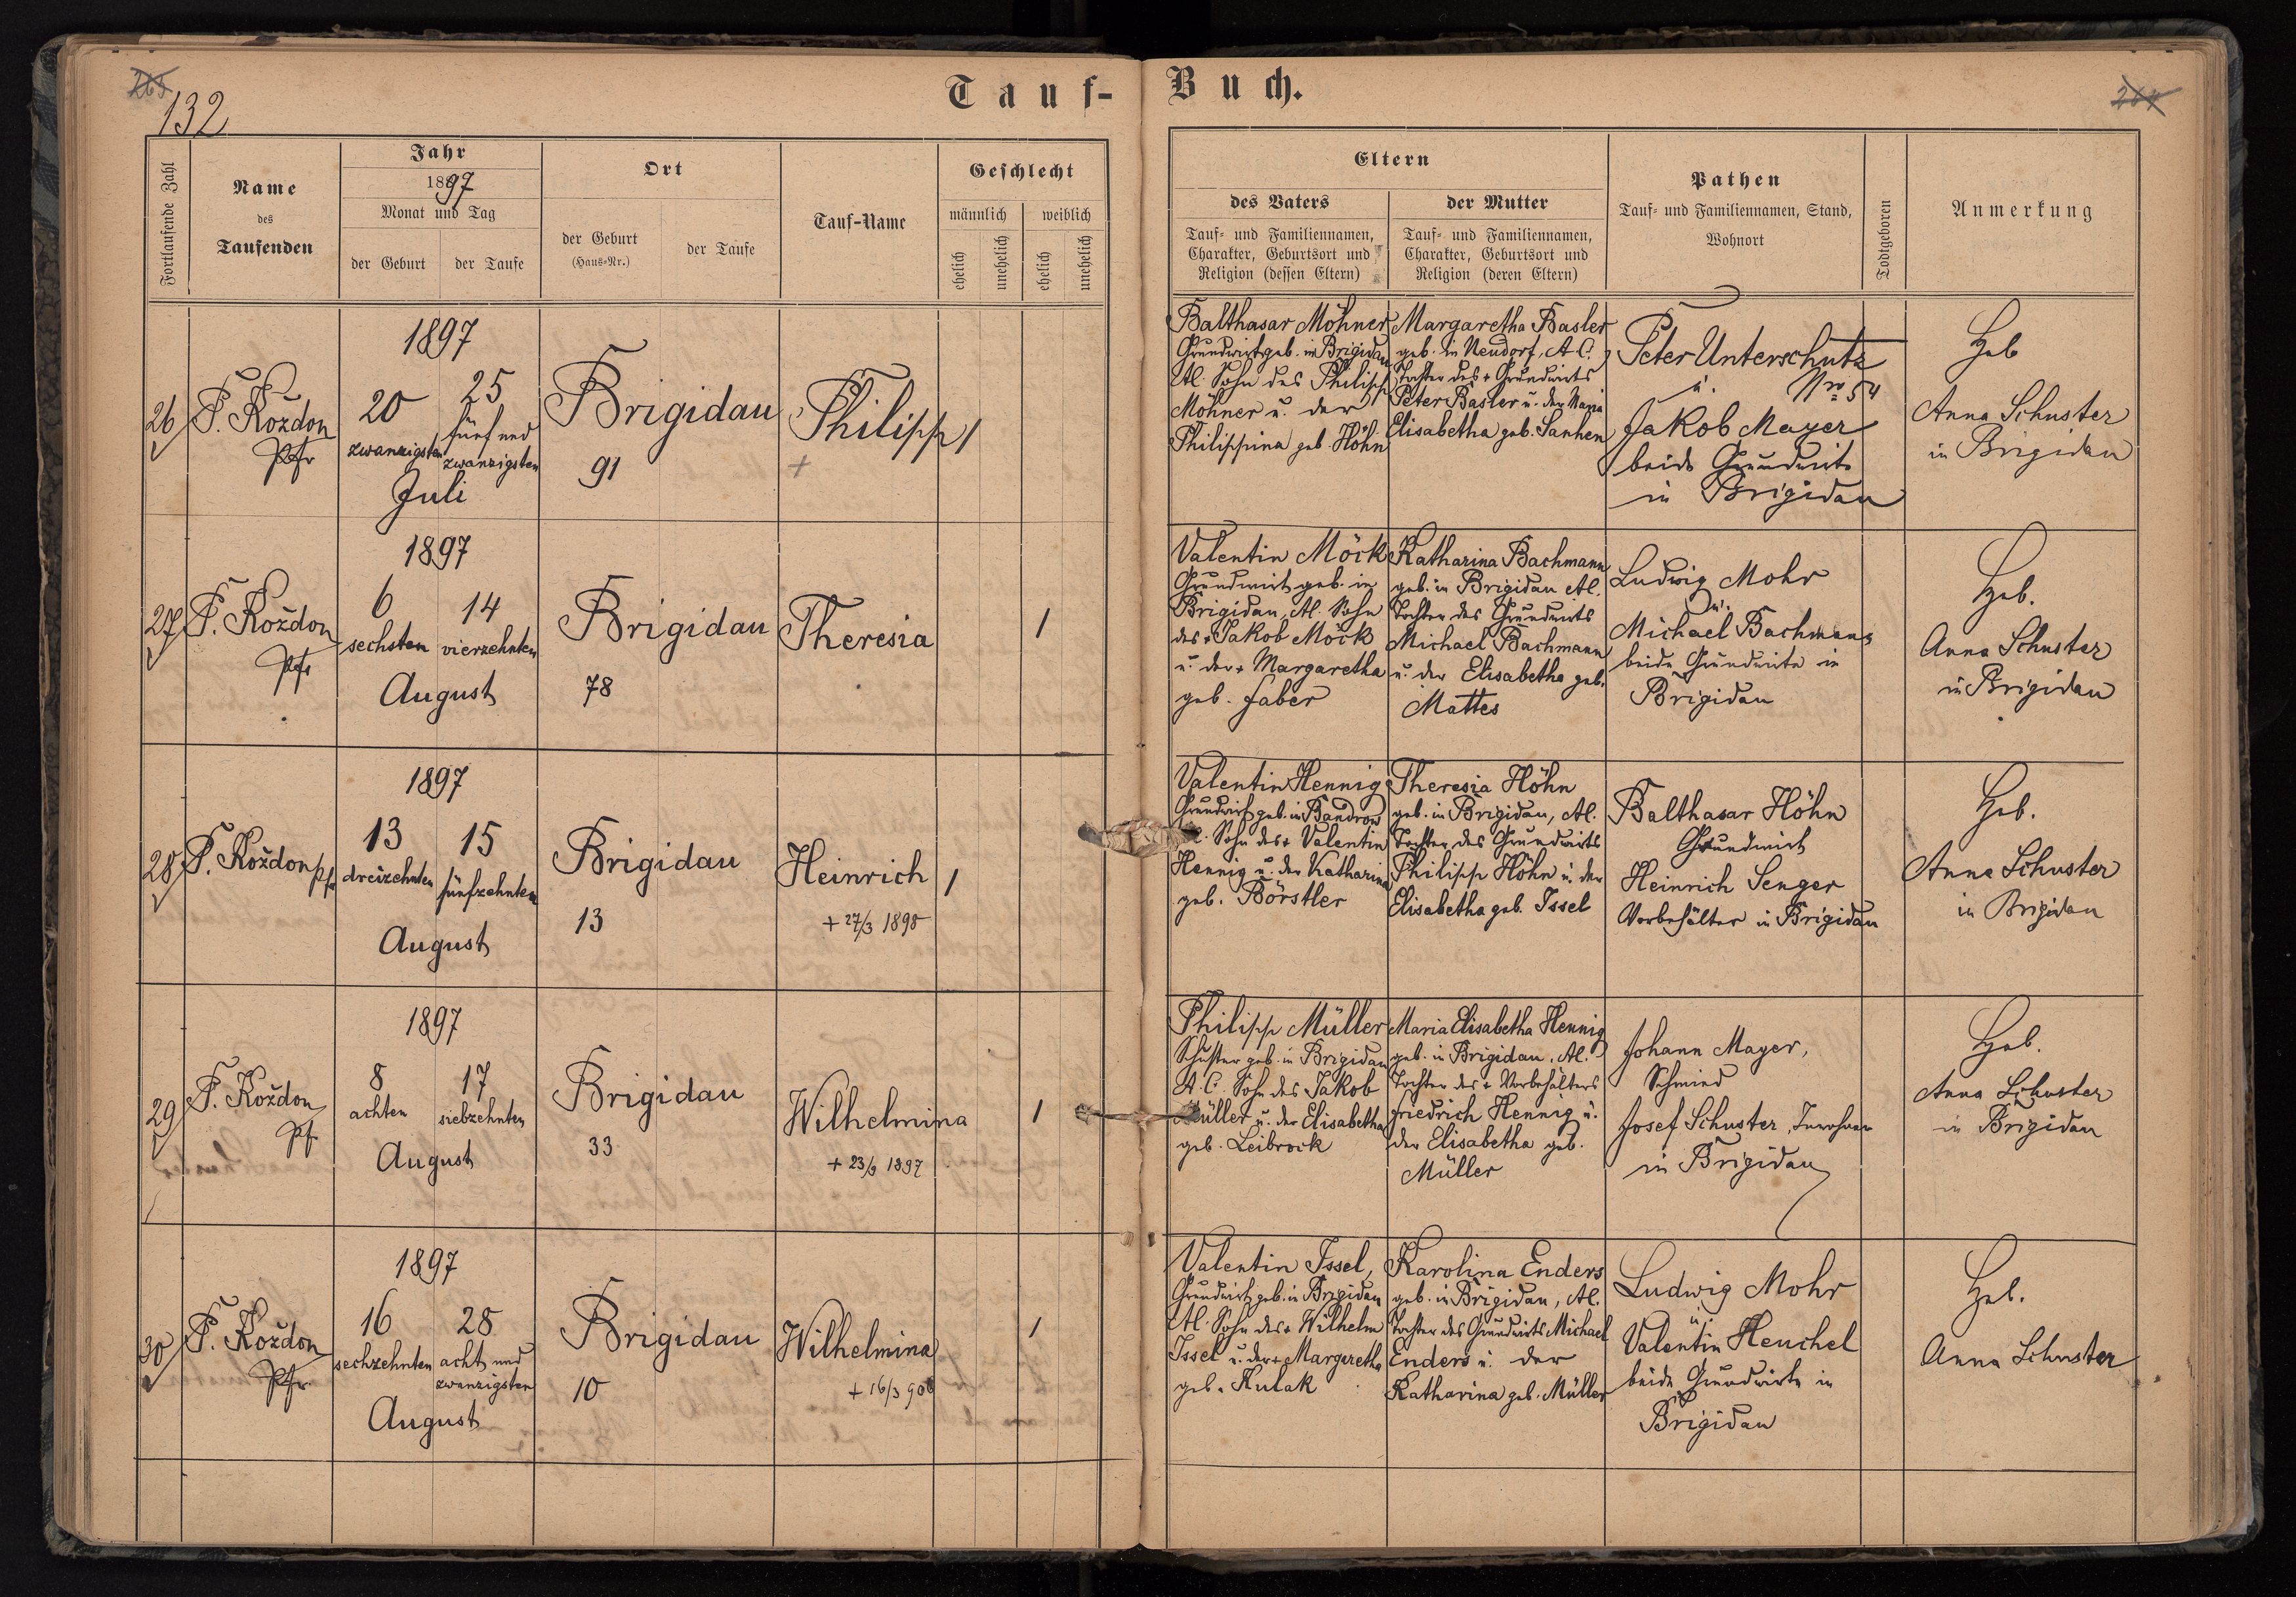 265
132
Tauf-
Fortlaufende Zahl
Name
des
Taufenden
Jahr
1897
Monat und Tag
der Geburt
der Taufe
Ort
der Geburt
(Haus-Nr.)
der Taufe
Tauf-Name
Geschlecht
männlich
weiblich
ehelich
unehelich
ehelich
unehelich
26
P. Koždon
Pfr
1897
20
25
zwanzigsten
fünf und
zwanzigsten
Juli
Brigidau
91
Philipp
+
1
27
P. Koždon
Pfr
1897
6
14
sechsten
vierzehnten
August
Brigidau
78
Theresia
1
28
P. Koždon pfr
1897
13
15
dreizehnten
fünfzehnten
August
Brigidau
13
Heinrich
+ 27/3 1898
1
29
P. Koždon
Pf.
1897
8
17
achten
siebzehnten
August
Brigidau
33
Wilhelmina
+ 23/9 1897
1
30
P. Koždon
Pfr.
1897
16
28
sechzehnten
acht und
zwanzigsten
August
Brigidau
10
Wilhelmina
+ 16/3 906
1
Buch.
Eltern
des Vaters
Tauf- und Familiennamen,
Charakter, Geburtsort und
Religion (dessen Eltern)
der Mutter
Tauf- und Familiennamen,
Charakter, Geburtsort und
Religion (deren Eltern)
Pathen
Tauf- und Familiennamen, Stand,
Wohnort
Todtgeboren
Anmerkung
Balthasar Möhner
Grundwirt geb. in Brigidau
AC. Sohn des Philipp
Möhner u. der
Philippina geb. Höhn
Margaretha Basler
geb. in Neudorf, A C.
Tochter des + Grundwirts
Peter Basler u. der Maria
Elisabetha geb. Sanhen
Peter Unterschütz
u. Nro 54
Jakob Mayer
beide Grundwirte
in Brigidau
Heb
Anna Schuster
in Brigidau
Valentin Möck
Grundwirt geb. in
Brigidau, AC. Sohn
des + Jakob Möck
u. der + Margaretha
geb. Faber
Katharina Bachmann
geb. in Brigidau AC.
Tochter des Grundwirts
Michael Bachmann
u. der Elisabetha geb.
Mattes
Ludwig Mohr
u.
Michael Bachmann
beide Grundwirte in
Brigidau
Heb.
Anna Schuster
in Brigidau
Valentin Hennig
Grundwirt geb. in Bandrow
Sohn des + Valentin
Hennig u. der Katharina
geb. Börstler
Theresia Höhn
geb. in Brigidau, AC.
Tochter des Grundwirts
Philipp Höhn u. der
Elisabetha geb. Issel
Balthasar Höhn
Grundwirt
Heinrich Senger
Vorbehälter in Brigidau
Heb.
Anna Schuster
in Brigidau
Philipp Müller
Schuster geb. in Brigidau
A. C. Sohn des Jakob
Müller u. der Elisabetha
geb. Leibrock
Maria Elisabetha Hennig
geb. in Brigidau, AC.
Tochter des + Vorbehälters
Friedrich Hennig u.
der Elisabetha geb.
Müller
Johann Mayer,
Schmied
Josef Schuster, Inwohner
in Brigidau
Heb.
Anna Schuster
in Brigidau
Valentin Issel,
Grundwirt geb. in Brigidau
AC. Sohn des + Wilhelm
Issel u. der + Margaretha
geb. Kulak
Karolina Enders
geb. in Brigidau, AC.
Tochter des Grundwirts Michael
Enders u. der
Katharina geb. Müller
Ludwig Mohr
u.
Valentin Heuchel
beide Grundwirte in
Brigidau
Heb.
Anna Schuster